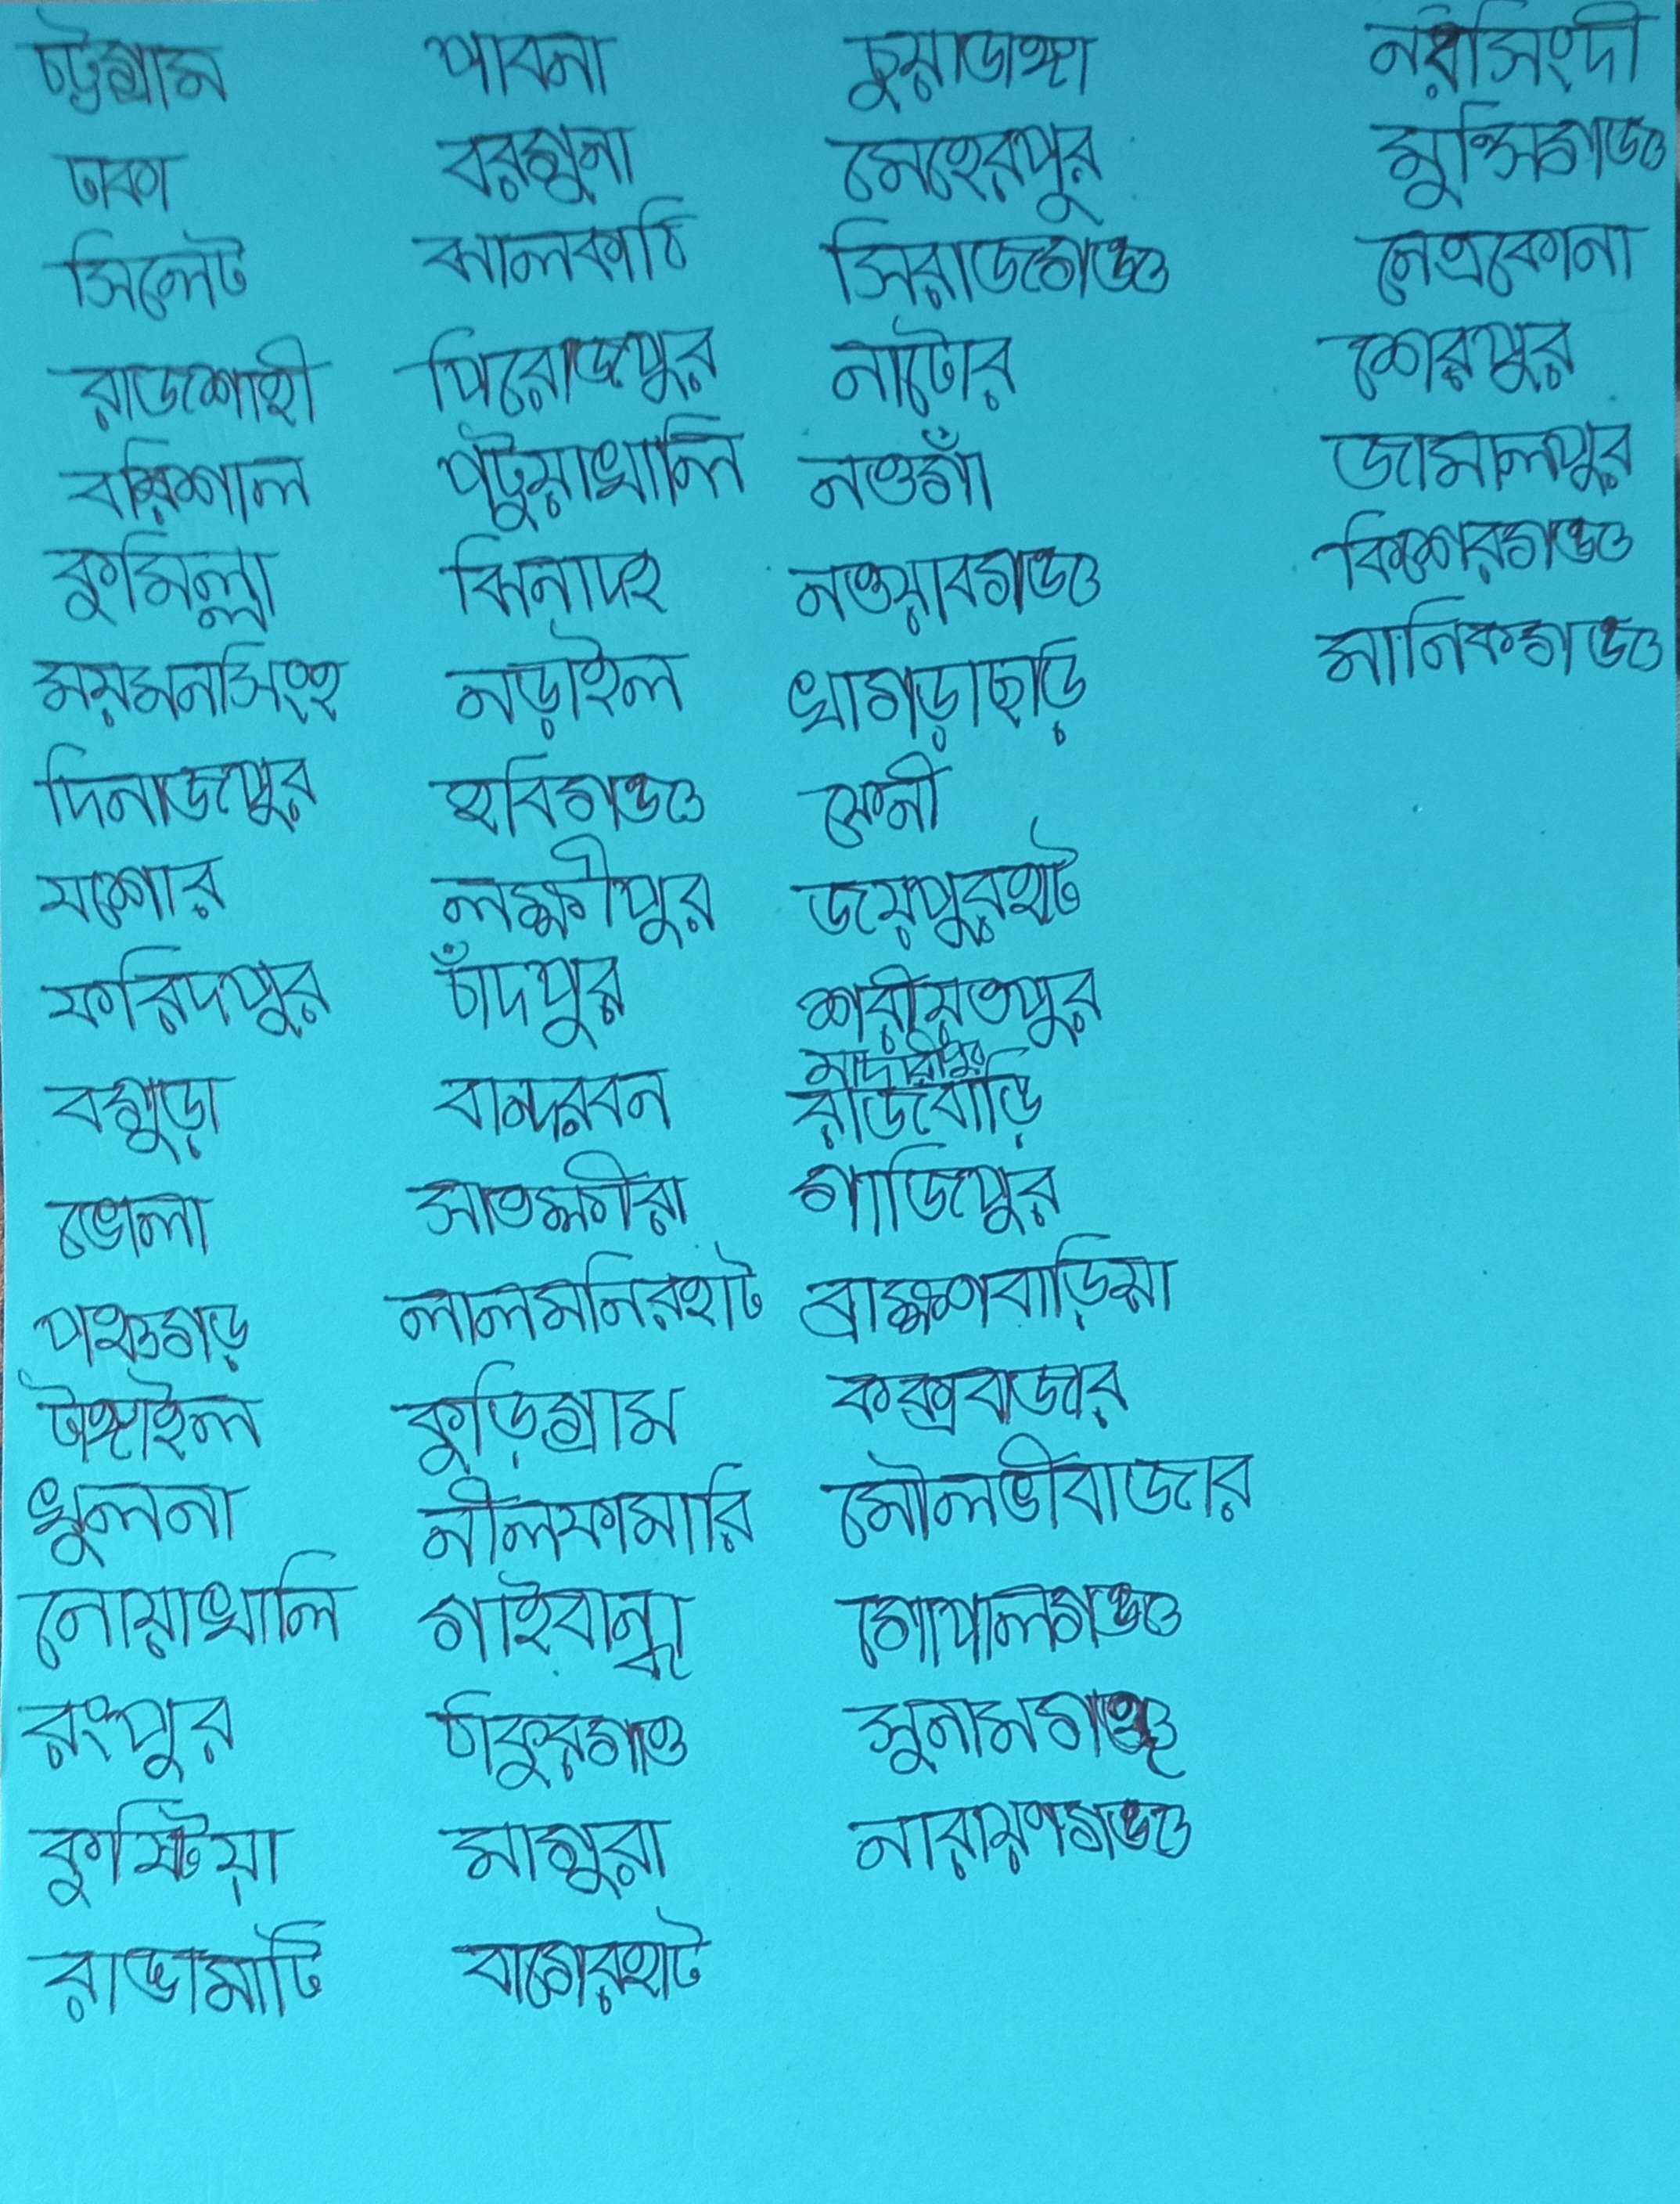 চট্টগ্রাম
ঢাকা
সিলেট
রাজশাহী
বরিশাল
কুমিল্লা
ময়মনসিংহ
দিনাজপুর
যশোর
ফরিদপুর
বগুড়া
ভোলা
পঞ্চগড়
টাঙ্গাইল
খুলনা
নোয়াখালি
রংপুর
কুষ্টিয়া
রাঙামাটি
পাবনা
বরগুনা
ঝালকাঠি
পিরোজপুর
পটুয়াখালি
ঝিনাদহ
নড়াইল
হবিগঞ্জ
লক্ষীপুর
চাঁদপুর
বান্দরবন
সাতক্ষীরা
লালমনিরহাট
কুড়িগ্রাম
নীলফামারি
গাইবান্ধা
ঠাকুরগাও
মাগুরা
বাগেরহাট
চুয়াডাঙ্গা
মেহেরপুর
সিরাজগেঞ্জ
নাটোর
নওগাঁ
নওয়াবগঞ্জ
খাগড়াছড়ি
ফেনী
জয়পুরহাট
শরীয়তপুর
মাদারীপুর
রাজবাড়ি
গাজিপুর
ব্রাহ্মণবাড়িয়া
কক্সবাজার
মৌলভীবাজার
গোপালগঞ্জ
সুনামগঞ্জ
নারায়ণগঞ্জ
নরসিংদী
মুন্সিগঞ্জ
নেত্রকোনা
শেরপুর
জামালপুর
কিশোরগঞ্জ
মানিকগঞ্জ